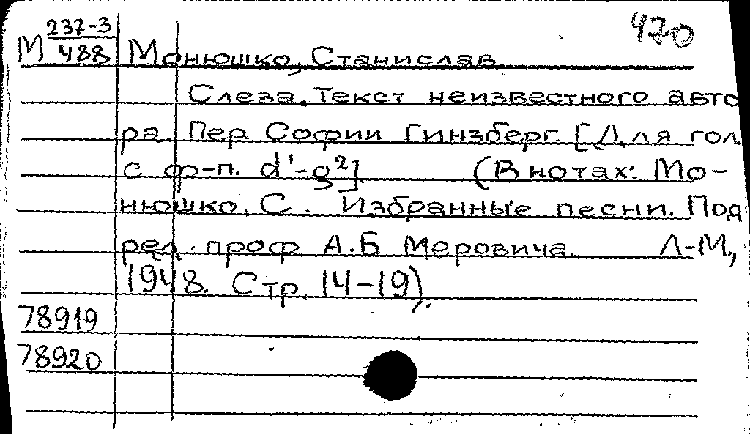 470
М 237-3/488 Монюшко, Станислав
Слеза. Текст неизвестного авто
ра. Пер Софии Гинзберг. [Для гол
с ф-п. d'-g²] (В нотах: Мо-
нюшко, С. Избранные песни. Под
ред. проф А.Б Меровича. Л-М,
1948. Стр. 14-19).
78919
78920